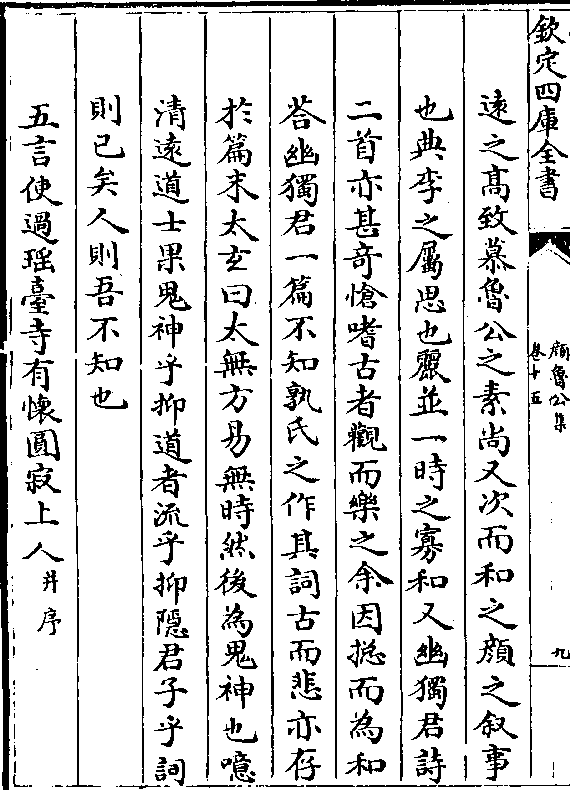 欽定四庫全書
顔魯公集
卷十五
九
逺之髙致慕魯公之素尚又次而和之顔之叙事
也典李之屬思也麗並一時之寡和又幽獨君詩
二首亦甚竒愴嗜古者觀而樂之余因揔而為和
荅幽獨君一篇不知孰氏之作其詞古而悲亦存
於篇末太玄曰太無方易無時然後為鬼神也噫
清逺道士果鬼神乎抑道者流乎抑隠君子乎詞
則已矣人則吾不知也
五言使過瑶臺寺有懷圓寂上人并序